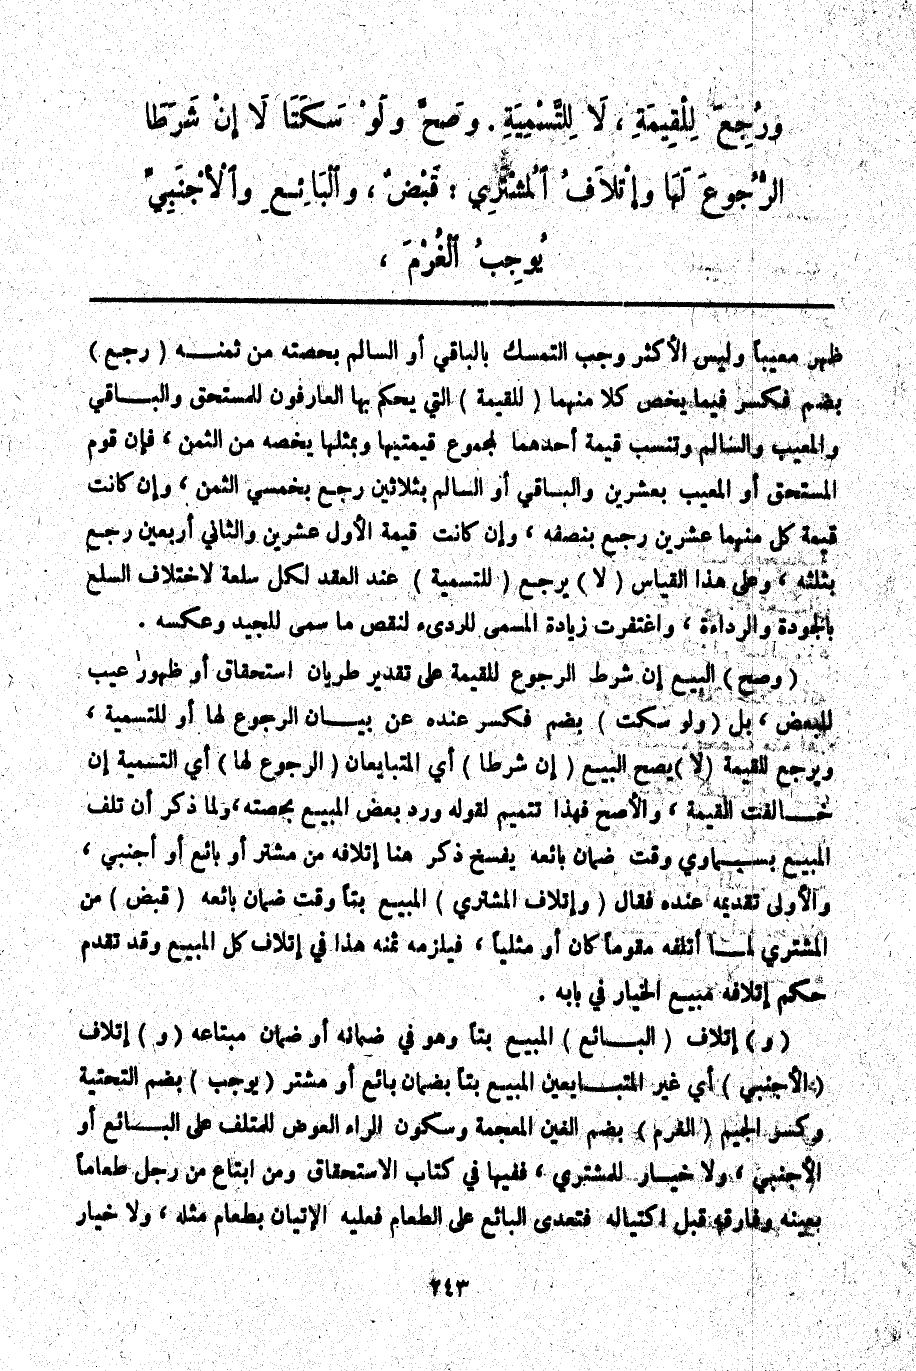 ورُجِعَ لِلْقِيمَةِ ، لَا لِلتَّسْمِيَةِ . وصَحَّ ولَوْ سَكَتَا لَا إِنْ شَرَطَا
الرُّجُوعَ لَهَا وإِتْلَافُ ٱلْمُشْتَرِي : قَبْضٌ ، وٱلْبَائِعِ وٱلْأَجْنَبِيِّ
يُوجِبُ ٱلْغُرْمَ ،
ظهر معيباً وليس الأكثر وجب التمسك بالباقي أو السالم بحصته من ثمنـــه ( رجع )
بضم فكسر فيما يخص كلا منهما ( للقيمة ) التي يحكم بها العارفون للمستحق والبـــاقي
والمعيب والسالم وتنسب قيمة أحدهما لمجموع قيمتيها وبمثلها يخصه من الثمن ، فإن قوم
المستحق أو المعيب بعشرين والبـاقي أو السالم بثلاثين رجـع بخمسي الثمن ، وإن كانت
قيمة كل منهما عشرين رجع بنصفه ، وإن كانت قيمة الأول عشرين والثاني أربعين رجـع
بثلثه ، وعلى هذا القياس ( لا ) يرجـع ( للتسمية ) عند العقد لكل سلعة لاختلاف السلع
بالجودة والرداءة ، واغتفرت زيادة المسمى للردىء لنقص ما سمى للجيد وعكسه .
( وصح ) البيـع إن شرط الرجوع للقيمة على تقدير طريان استحقاق أو ظهور عيب
للبعض ، بل ( ولو سكت ) بضم فكسر عنده عن بيـــان الرجوع لها أو للتسمية ،
ويرجع للقيمة ( لا )يصح البيـع ( إن شرطا ) أي المتبايعان ( الرجوع لها ) أي التسمية إن
خـــالفت القيمة ، والأصح فهذا تتميم لقوله ورد بعض المبيـع بحصته،ولما ذكر أن تلف
المبيـع بسـمـاوي وقت ضمان بائعه يفسخ ذكر هنا إتلافه من مشتر أو بائع أو أجنبي ،
والأولى تقديمه عنده فقال ( وإتلاف المشتري ) المبيـع بتاً وقت ضمان بائعه ( قبض ) من
المشتري لمـــا أتلفه مقوماً كان أو مثلياً ، فيلزمه ثمنه هذا في إتلاف كل المبيـع وقد تقدم
حكم إتلافه مبيـع الخيار في بابه .
( و ) إتلاف ( البـــائع ) المبيـع بتاً وهو في ضمانه أو ضمان مبتاعه ( و ) إتلاف
( الأجنبي ) أي غير المتبـــايعين المبيـع بتاً بضمان بائع أو مشتر ( يوجب ) بضم التحتية
وكسر الجيم ( الغرم ) بضم الغين المعجمة وسكون الراء العوض للمتلف على البـــائع أو
الأجنبي ، ولا خيـار للمشتري ، ففيها في كتاب الاستحقاق ومن ابتاع من رجل طعاماً
بعينه وفارقه قبل اكتياله فتعدى البائع على الطعام فعليه الإتيان بطعام مثله ، ولا خيار
٢٤٣